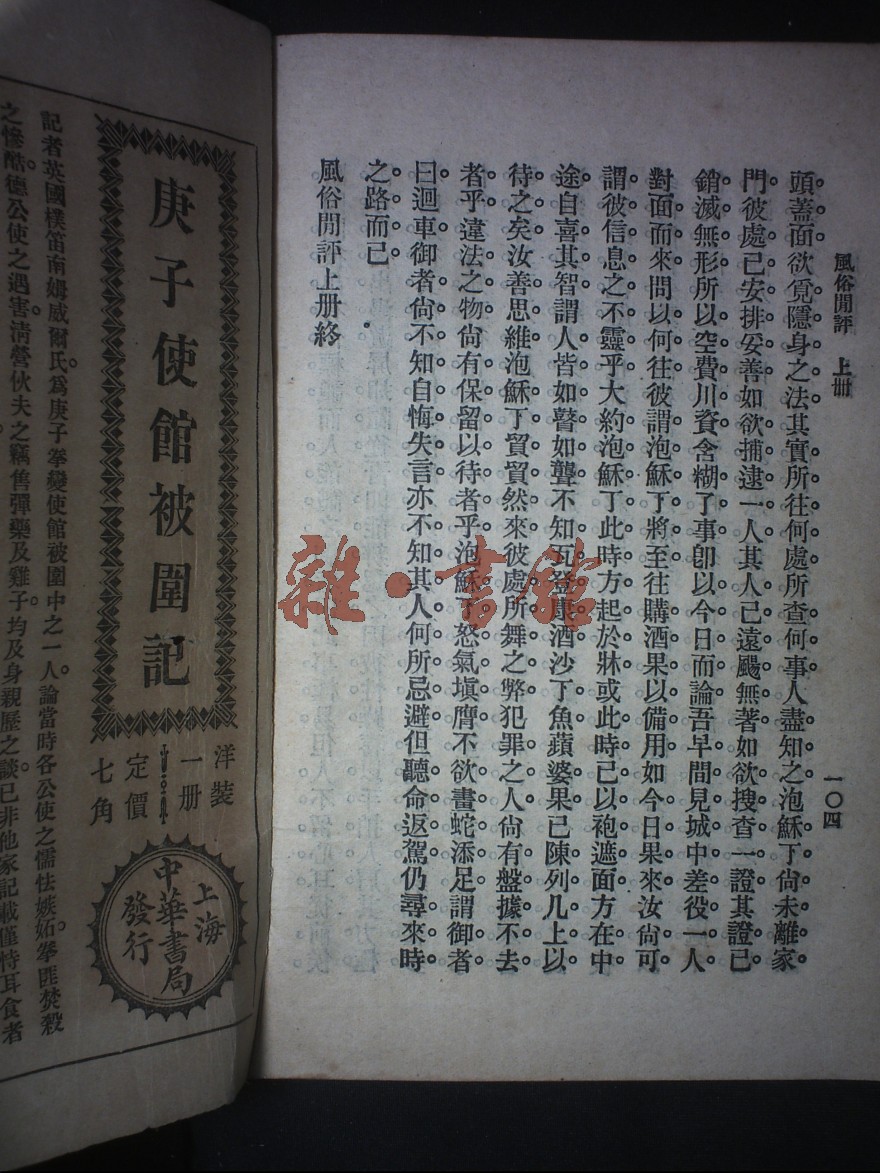 風俗閒評 上册
一〇四
頭蓋面欲覓隱身之法其實所往何處所查何事人盡知之泡穌丁尙未離家
門彼處已安排妥善如欲捕逮一人其人已遠颺無著如欲搜查一證其證已
銷滅無形所以空費川資含糊了事卽以今日而論吾早間見城中差役一人
對面而來問以何往彼謂泡穌丁將至往購酒果以備用如今日果來汝尙可
謂彼信息之不靈乎大約泡穌丁此時方起於牀或此時已以袍遮面方在中
途自喜其智謂人皆如瞽如聾不知瓦登康酒沙丁魚蘋婆果已陳列几上以
待之矣汝善思維泡穌丁貿貿然來彼處所舞之弊犯罪之人尙有盤據不去
者乎違法之物尙有保留以待者乎泡穌丁怒氣塡膺不欲畫蛇添足謂御者
曰迴車御者尙不知自悔失言亦不知其人何所忌避但聽命返駕仍尋來時
之路而已
風俗閒評上册終
雜·書館
庚子使館被圍記
洋裝
一册
定價
七角
上海
中華書局
發行
記者英國樸笛南姆威爾氏爲庚子拳變使館被圍中之一人。論當時各公使之懦怯嫉妬。拳匪焚殺
之慘酷。德公使之遇害。淸營伙夫之竊售彈藥及雞子。均及身親歷之談。已非他家記載僅恃耳食者